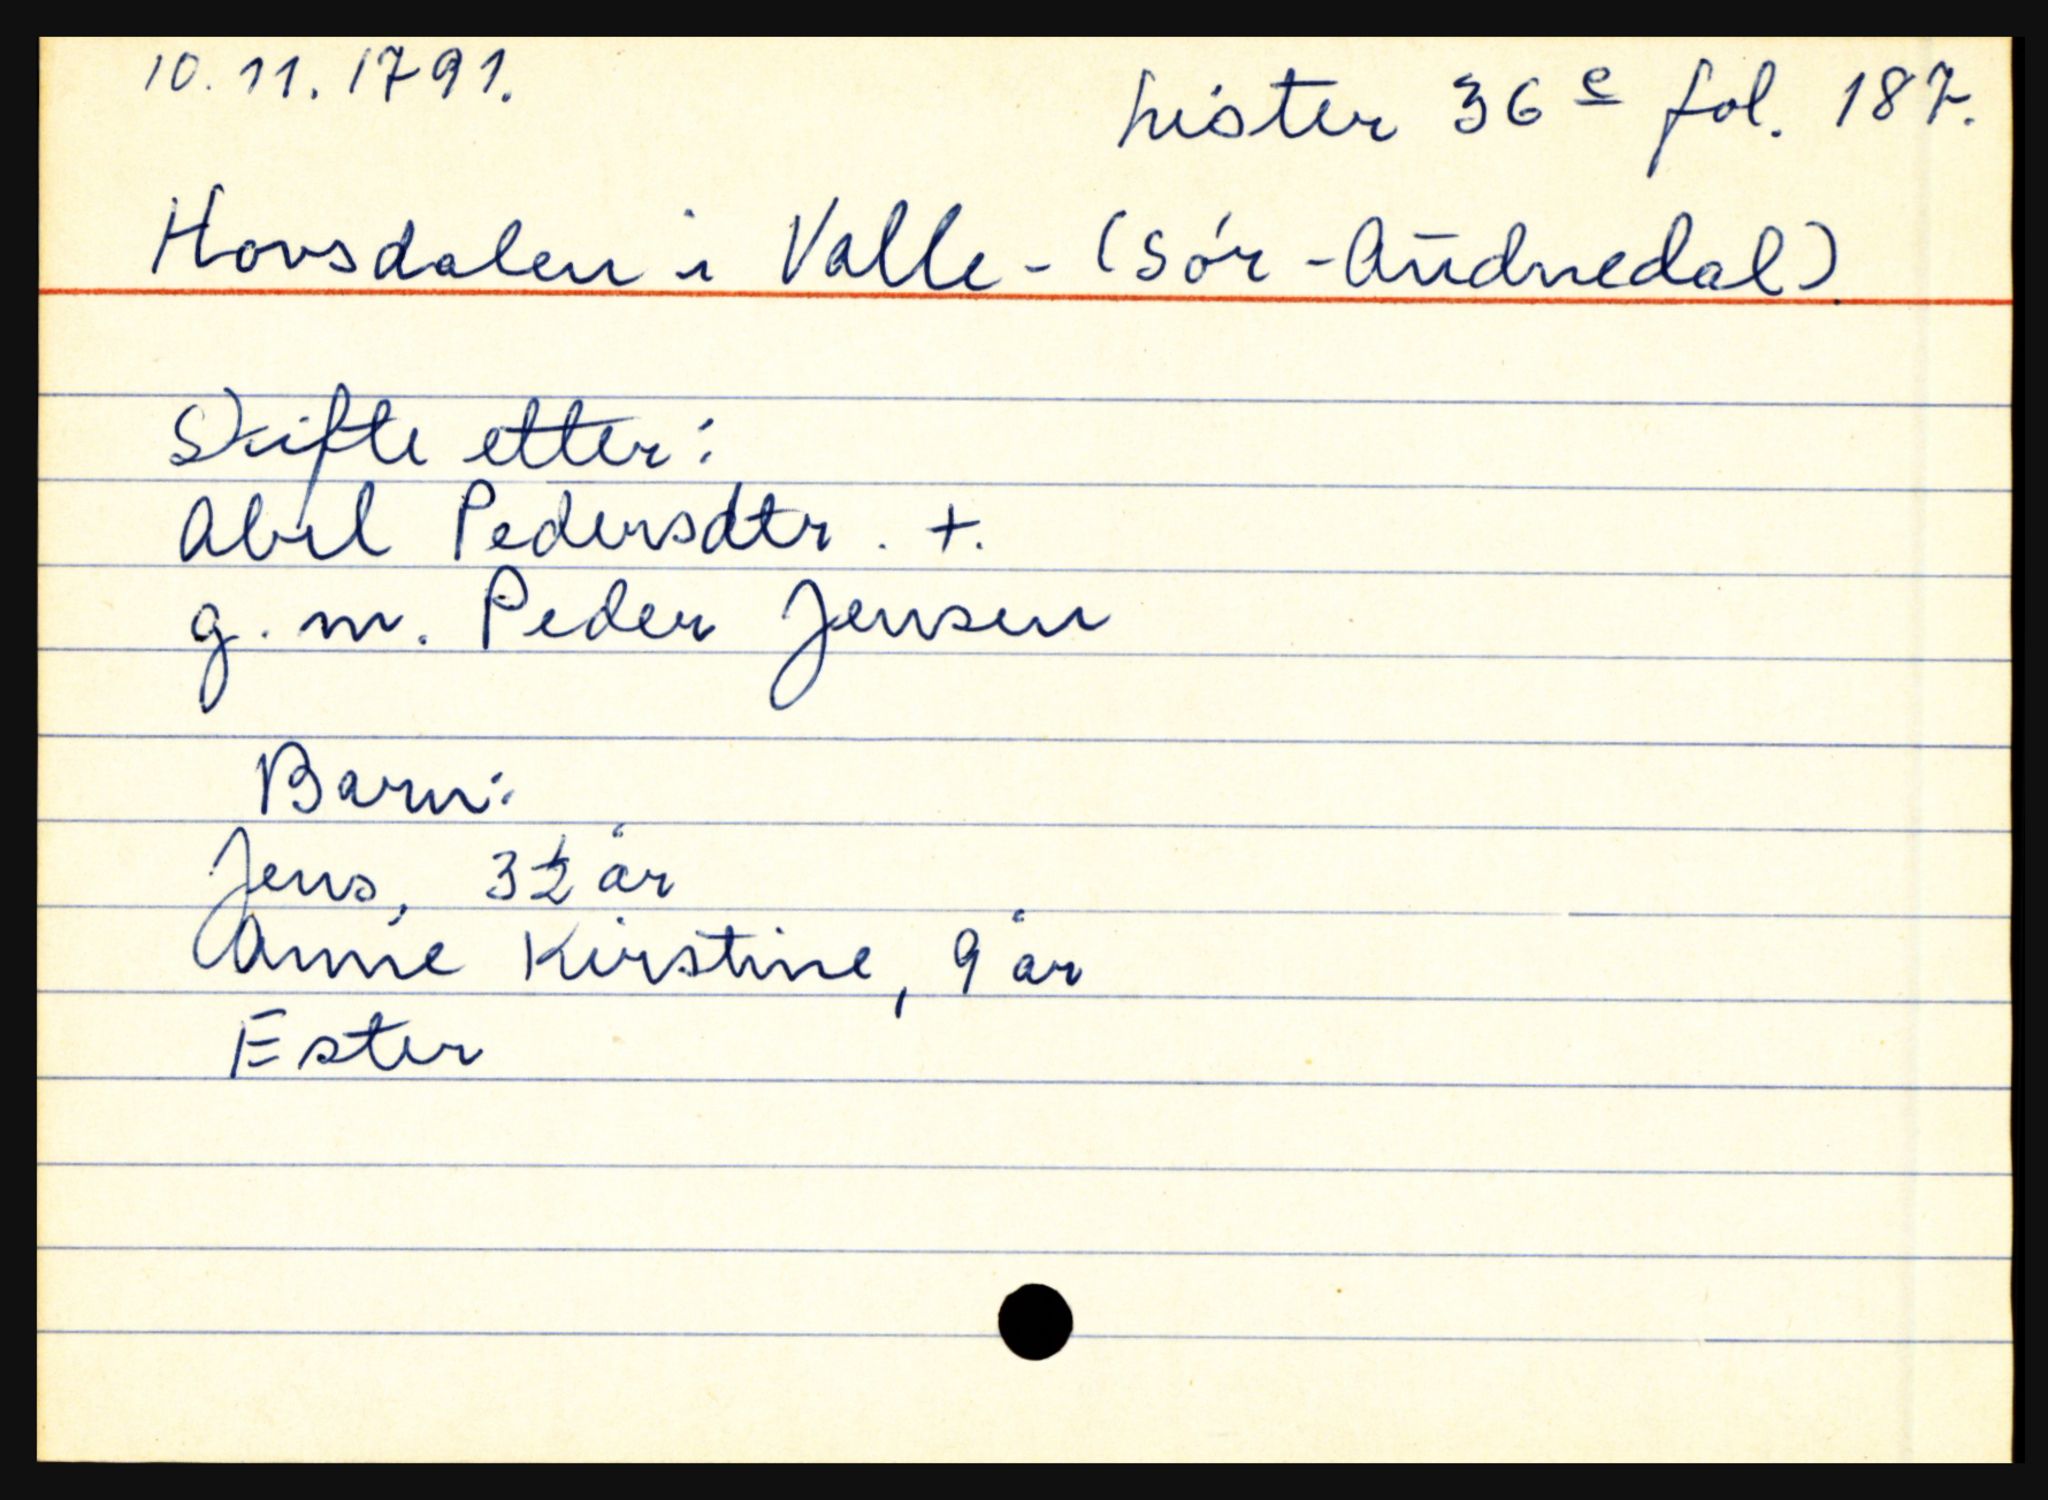 10.11.1791.
Lister 36 c fol. 187.
Hovsdalen i Valle - (Sór-Audnedal)
Skifte etter:
Abel Pedersdtr. +.
g.m. Peder Jensen
Barn:
Jens, 3½ år
Anne Kirstine, 9 år
Ester